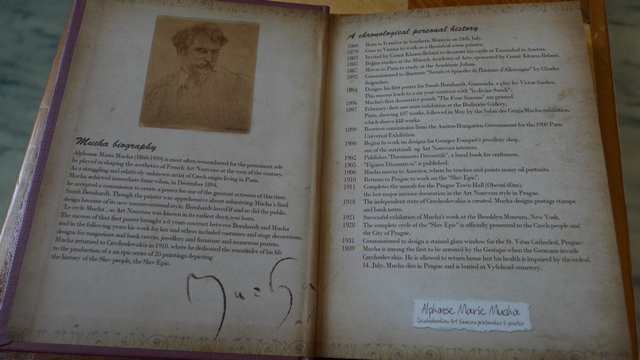 Mucha biography
Alphonse Maria Mucha (1860-1939) is most often remembered for the prominent role
he played in shaping the aesthetics of French Art Nouveau at the turn of the century.
As a struggling and relatively unknown artist of Czech origin living in Paris,
Mucha achieved immediate fame when, in December 1894,
he accepted a commission to create a poster for one of the greatest actresses of this time,
Sarah Bernhardt. Though the printer was apprehensive about submitting Mucha's final
design because of its new unconventional style, Bernhardt loved it and so did the public.
'Le style Mucha', as Art Nouveau was known in its earliest days, was born.
The success of that first poster brought a 6 years contract between Bernhardt and Mucha
and in the following years his work for her and others included costumes and stage decorations,
designs for magazines and book covers, jewellery and furniture and numerous posters.
Mucha returned to Czechoslovakia in 1910, where he dedicated the remainder of his life
to the production of a an epic series of 20 paintings depicting
the history of the Slav people, the Slav Epic.
Mucha
A chronological personal history
1860 Born in Ivančice in Southern Moravia on 24th July.
1879 Goes to Vienna to work as a theatrical scene painter.
1883 Invited by Count Khuen-Belassi to decorate his castle at Emmahof in Austria.
1885 Begins studies at the Munich Academy of Arts, sponsored by Count Khuen-Belassi.
1887 Moves to Paris to study at the Académie Julian.
1892 Commissioned to illustrate "Scenès et Episodes de l'histoire d'Allemagne" by Charles
Seignobos.
1894 Designs his first poster for Sarah Bernhardt, Gismonda, a play by Victor Sardou.
This success leads to a six year contract with "la divine Sarah".
1896 Mucha's first decorative panels "The Four Seasons" are printed.
1897 February: first one man exhibition at the Bodinière Gallery,
Paris, showing 107 works, followed in May by the Salon des Cent's Mucha exhibition,
which shows 448 works.
1899 Receives commission from the Austro-Hungarian Government for the 1900 Paris
Universal Exhibition.
1900 Begins work on designs for Georges Fouquet's jewellery shop,
one of the outstanding Art Nouveau interiors.
1902 Publishes "Documents Décoratifs", a hand book for craftsmen.
1905 "Figures Décoratives" is published.
1906 Mucha moves to America, where he teaches and paints many oil portraits.
1910 Returns to Prague to work on the "Slav Epic".
1911 Completes the murals for the Prague Town Hall (Obecní dům),
the last major interior decoration in the Art Nouveau style in Prague.
1918 The independent state of Czechoslovakia is created. Mucha designs postage stamps
and bank notes.
1921 Successful exhibition of Mucha's work at the Brooklyn Museum, New York.
1928 The complete cycle of the "Slav Epic" is officially presented to the Czech people and
the City of Prague.
1931 Commissioned to design a stained glass window for the St. Vitus Cathedral, Prague.
1939 Mucha is among the first to be arrested by the Gestapo when the Germans invade
Czechoslovakia. He is allowed to return home but his health is impaired by the ordeal.
14. July, Mucha dies in Prague and is buried at Vyšehrad cemetery.
Alphonse Marie Mucha
Czechoslovakian Art Nouveau printmaker & painter